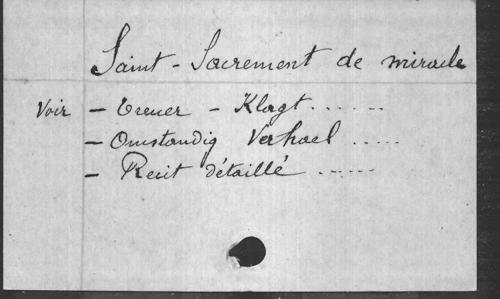 Saint-Sacrement de miracle
Voir - Treuer - Klagt ......
- Omstandig Verhael .....
- Récit détaillé .....